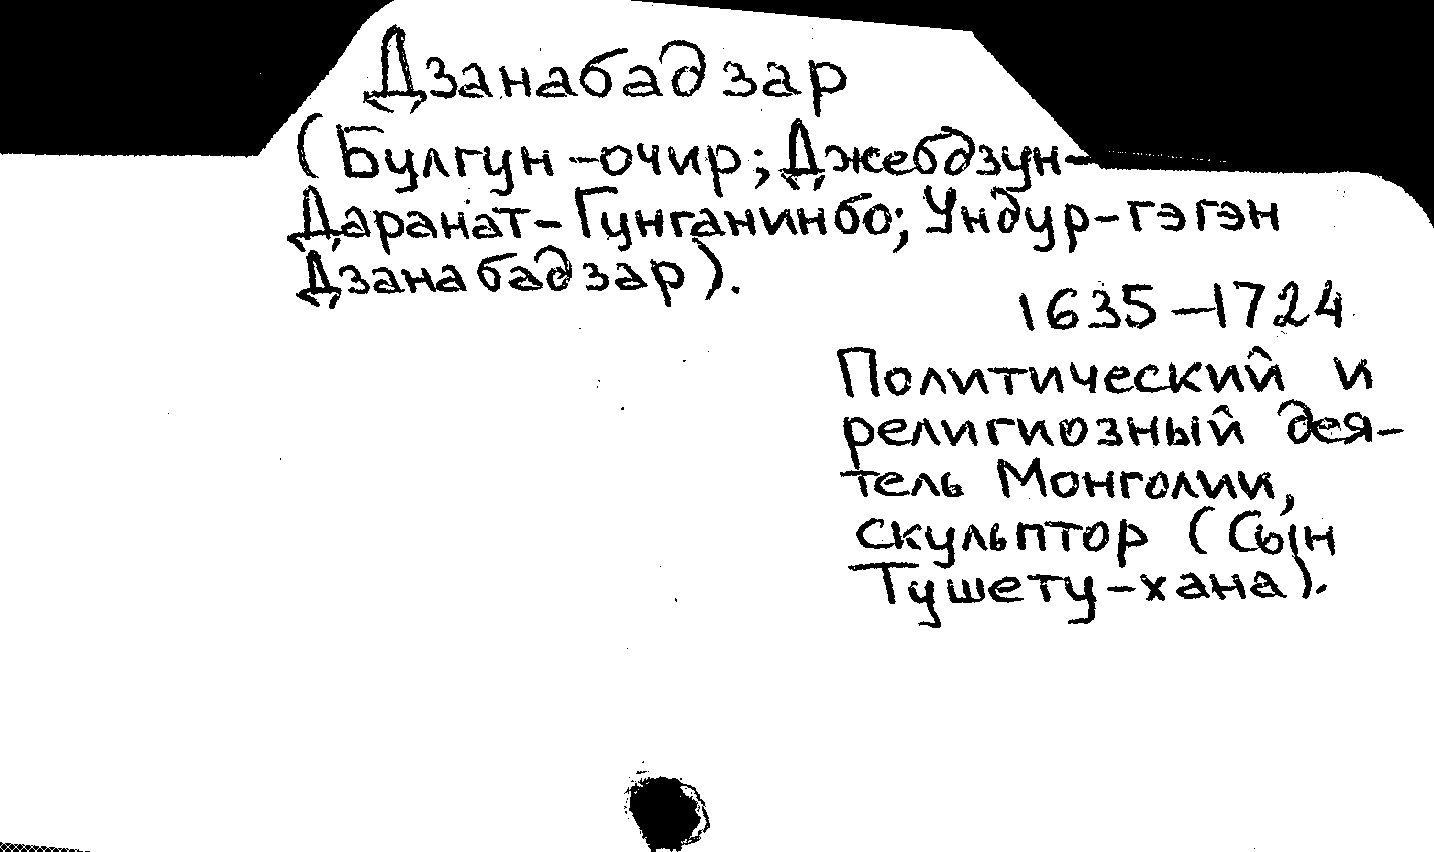 Дзанабадзар
(Булгун-очир; Джебдзун-
Даранат-Гунганинбо; Ундур-гэгэн
Дзанабадзар).
1635-1724
Политический и
религиозный дея-
тель Монголии,
скульптор (Сын
Тушету-хана).